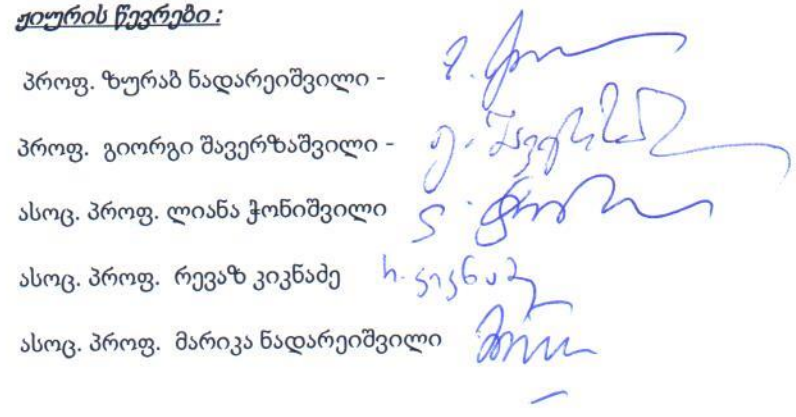 ჟიურის წევრები :
პროფ. ზურაბ ნადარეიშვილი -
პროფ. გიორგი შავერზაშვილი -
ასოც. პროფ. ლიანა ჭონიშვილი
ასოც. პროფ. რევაზ კიკნაძე რ. კიკნაძე
ასოც. პროფ. მარიკა ნადარეიშვილი